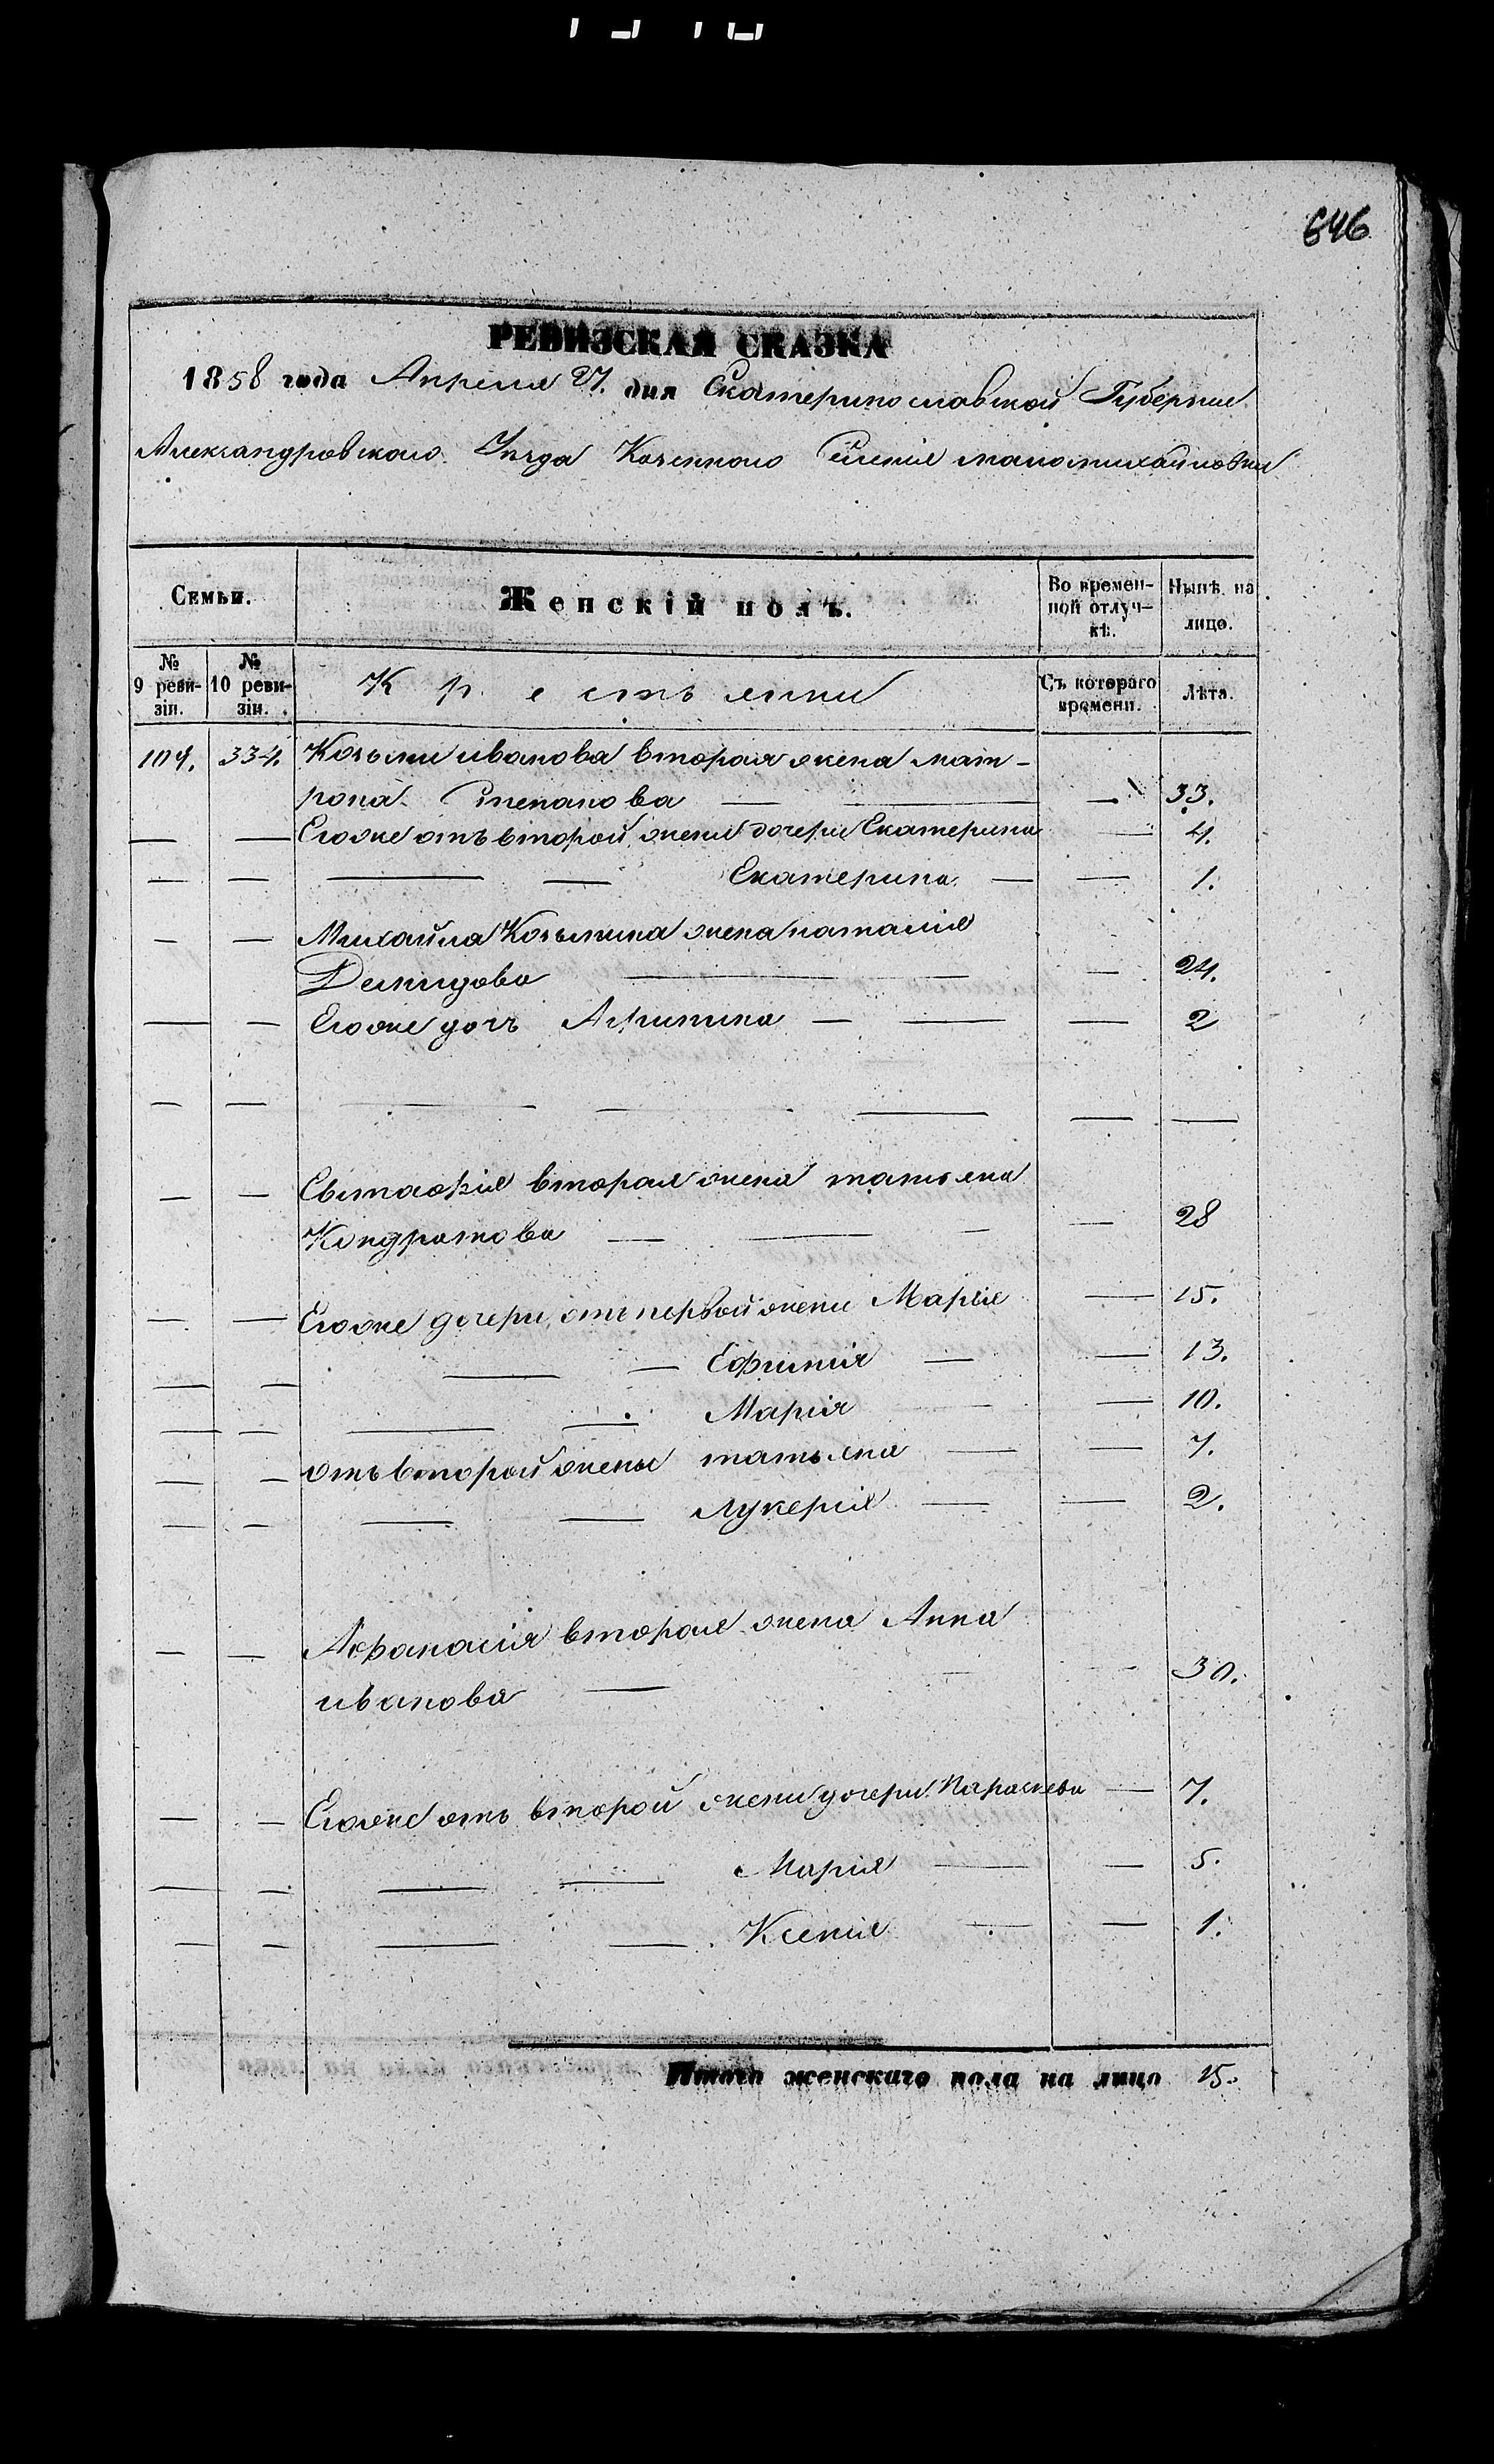 646
РЕВИЗСКАЯ СКАЗКА
1858 года Апреля 27. дня Екатеринославской Губернии
Александровского Уезда Казенного Селения маломихайловки
Семьи. Женскій полъ. Во времен- Нынѣ на
ной отлуч- лицо.
кѣ.
№ №
9 реви- 10 реви- Крестьянки Съ котораго Лѣта.
зіи. зіи. времени.
109. 334. Козьми иванова вторая жена мат-
рона Степанова — — — 33.
— — Егоже отъ второй жени дочери Екатерина — 4.
— — — — Екатерина — — 1.
— — Михайла Козьмина жена наталия
Демидова — — 24.
— — Егоже дочь Агрипина — — — 2
— — — — — — —
— — Евстафия вторая жена татьяна
Кондратова — — — — 28
— — Егоже дочери отъ первой жени Мария — 15.
— — — — Ефимия — — 13.
— — — — Мария — — 10.
— — отъ второй жены татьяна — — 7.
— — — — Лукерия — — 2.
— — Афанасия вторая жена Анна
иванова — — — 30.
— — Егоже отъ второй жени дочери Параскева — 7.
— — — — Мария — — 5.
— — — — Ксения — — 1.
Итого женскаго пола на лицо 15.